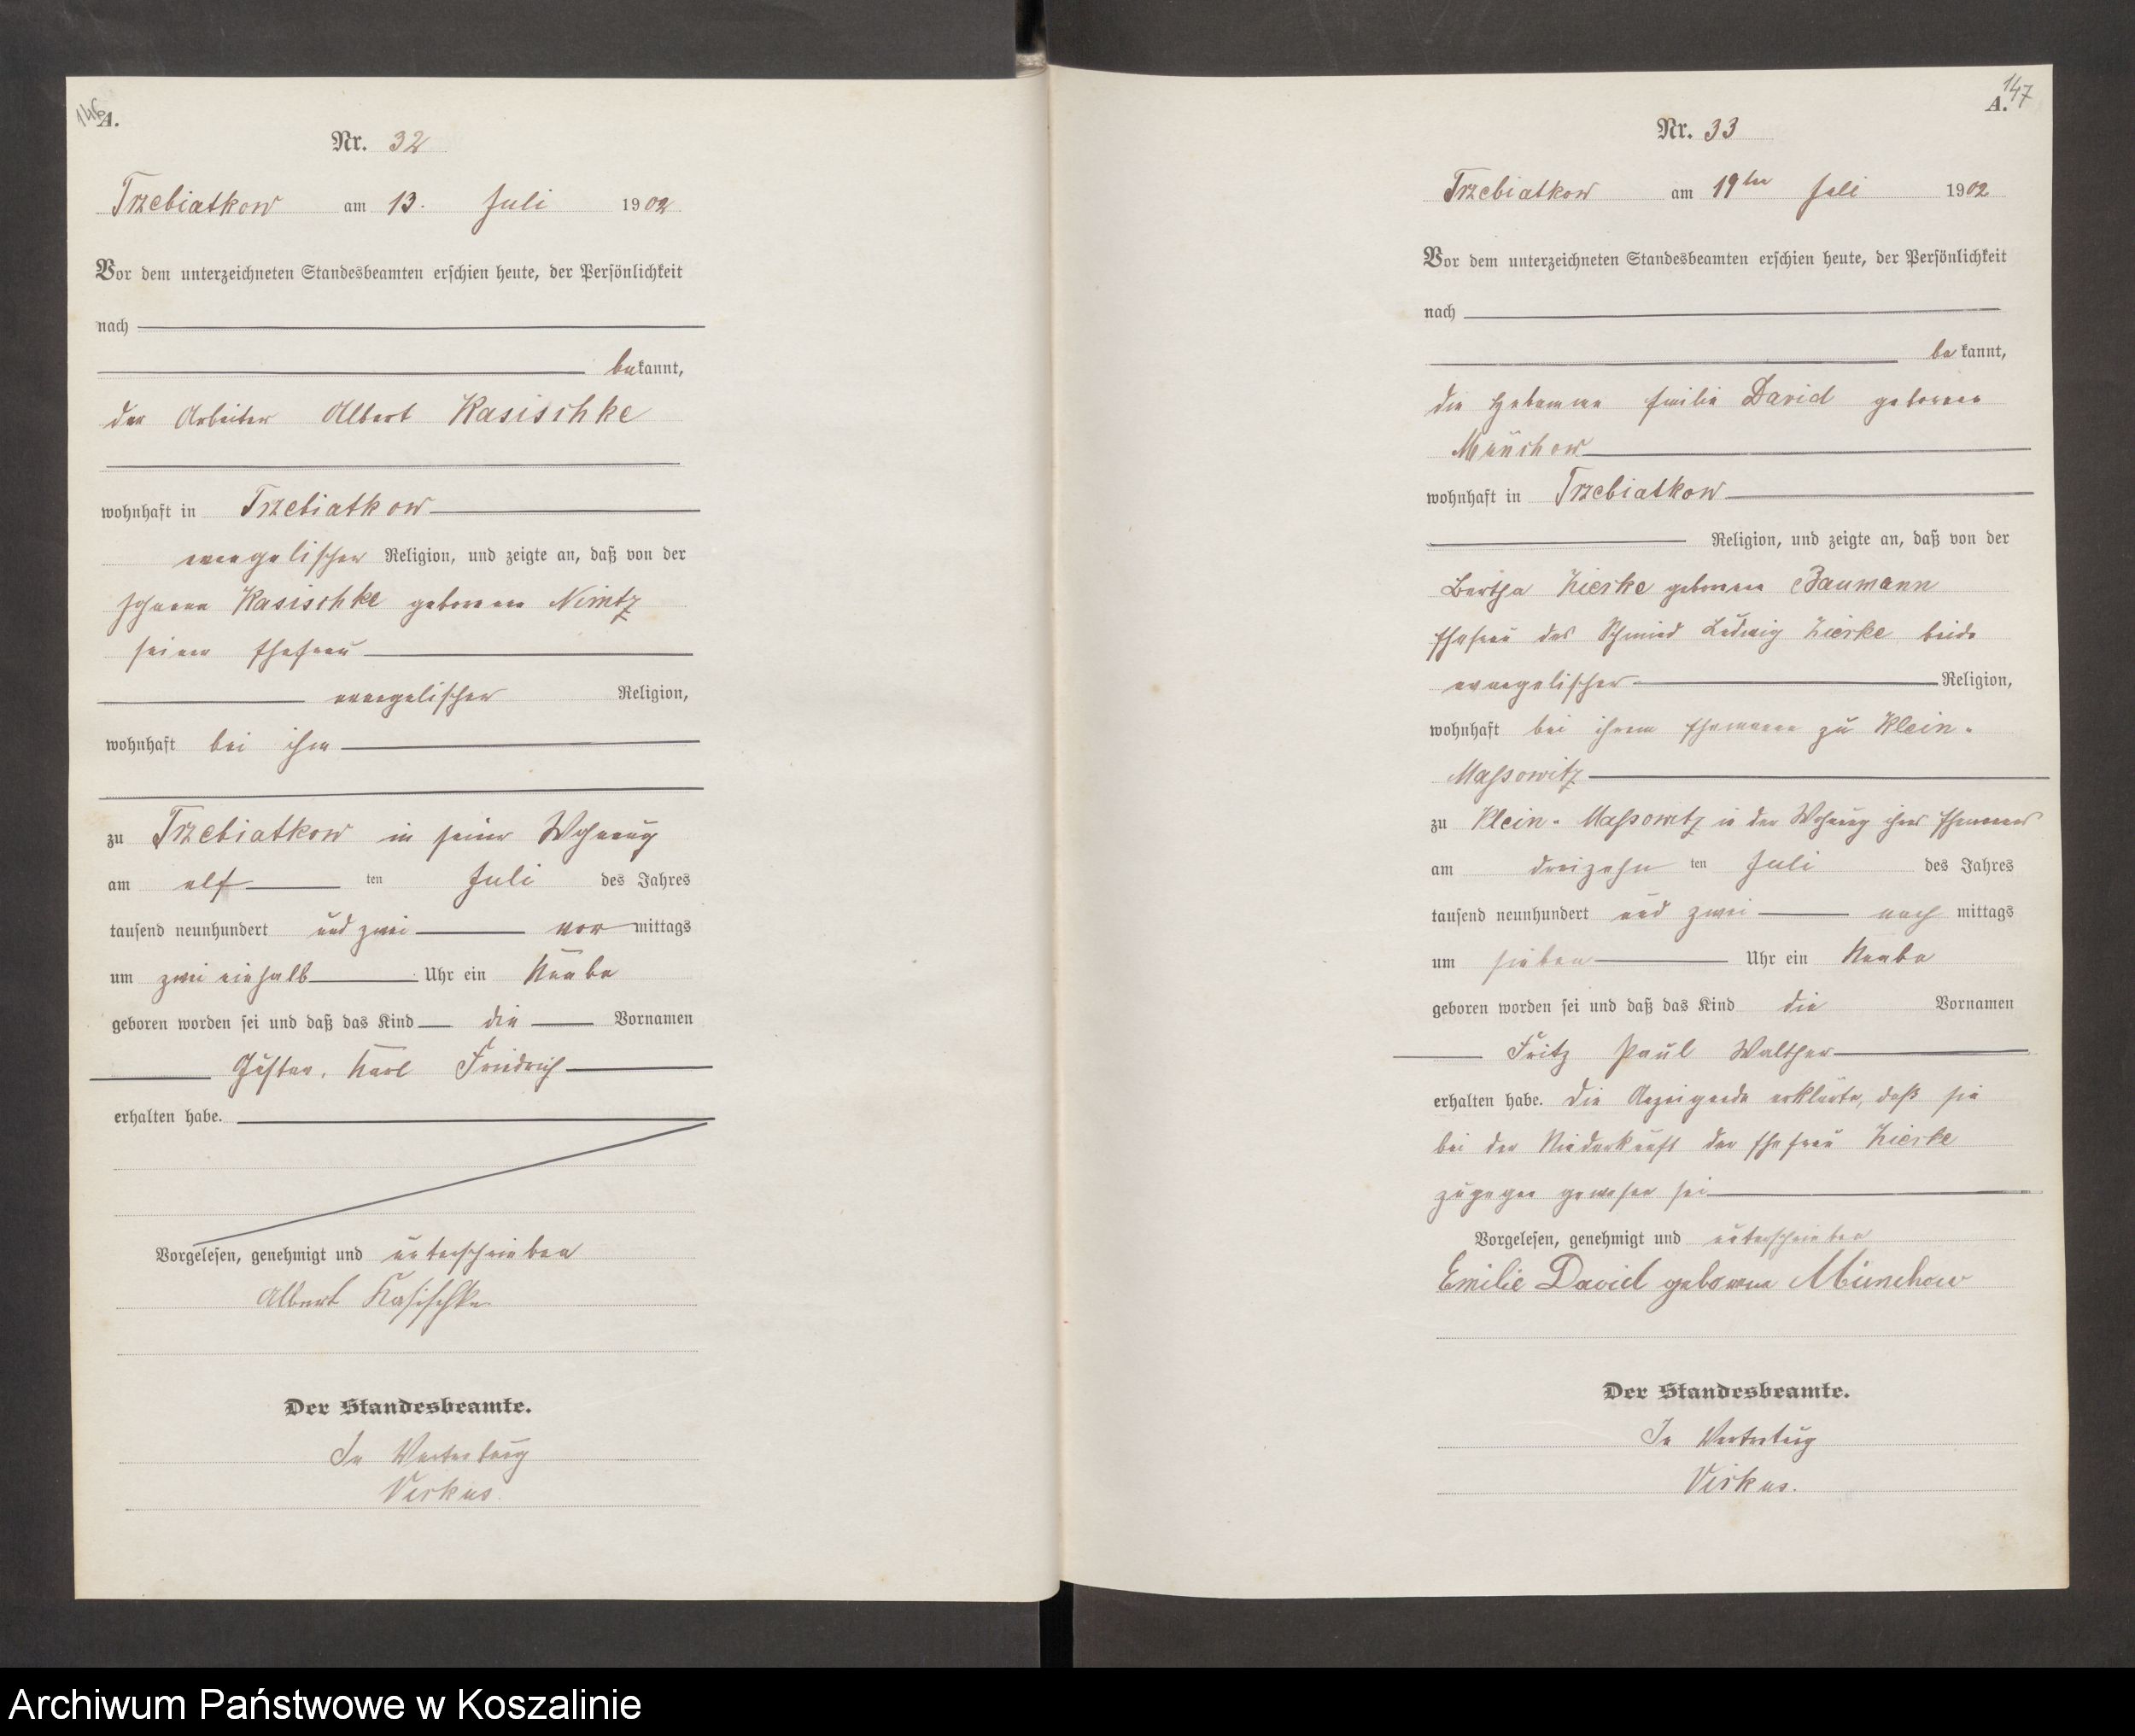 146
A.
Nr. 32
Trzebiatkow am 13. Juli 1902
Vor dem unterzeichneten Standesbeamten erschien heute, der Persönlichkeit
nach
bekannt,
der Arbeiter Albert Kasischke
wohnhaft in Trzebiatkow
evangelischer Religion, und zeigte an, daß von der
Kasischke geborene Nimtz
seiner Ehefrau
evangelischer Religion,
wohnhaft bei ihm
zu Trzebiatkow in seiner Wohnung
am elf ten Juli des Jahres
tausend neunhundert und zwei vor mittags
um zwei einhalb Uhr ein Knabe
geboren worden sei und daß das Kind die Vornamen
Gustav, Karl Friedrich
erhalten habe.
Vorgelesen, genehmigt und unterschrieben
Albert Kasischke
Der Standesbeamte.
In Vertretung
Virkus.
147
A.
Nr. 33
Trzebiatkow am 19ten Juli 1902
Vor dem unterzeichneten Standesbeamten erschien heute, der Persönlichkeit
nach
bekannt,
die Hebamme Emilie David geborene
Münchow
wohnhaft in Trzebiatkow
Religion, und zeigte an, daß von der
Bertha Zierke geborene Baumann
Ehefrau des Schmied Ludwig Zierke beide
evangelischer Religion,
wohnhaft bei ihrem Ehemanne zu Klein-
Massowitz
zu Klein-Massowitz in der Wohnung ihres Ehemannes
am dreizehn ten Juli des Jahres
tausend neunhundert und zwei nach mittags
um sieben Uhr ein Knabe
geboren worden sei und daß das Kind die Vornamen
Fritz Paul Walther
erhalten habe. Die Anzeigende erklärte, daß sie
bei der Niederkunft der Ehefrau Zierke
zugegen gewesen sei
Vorgelesen, genehmigt und unterschrieben
Emilie David geborene Münchow
Der Standesbeamte.
In Vertretung
Virkus.
Archiwum Państwowe w Koszalinie